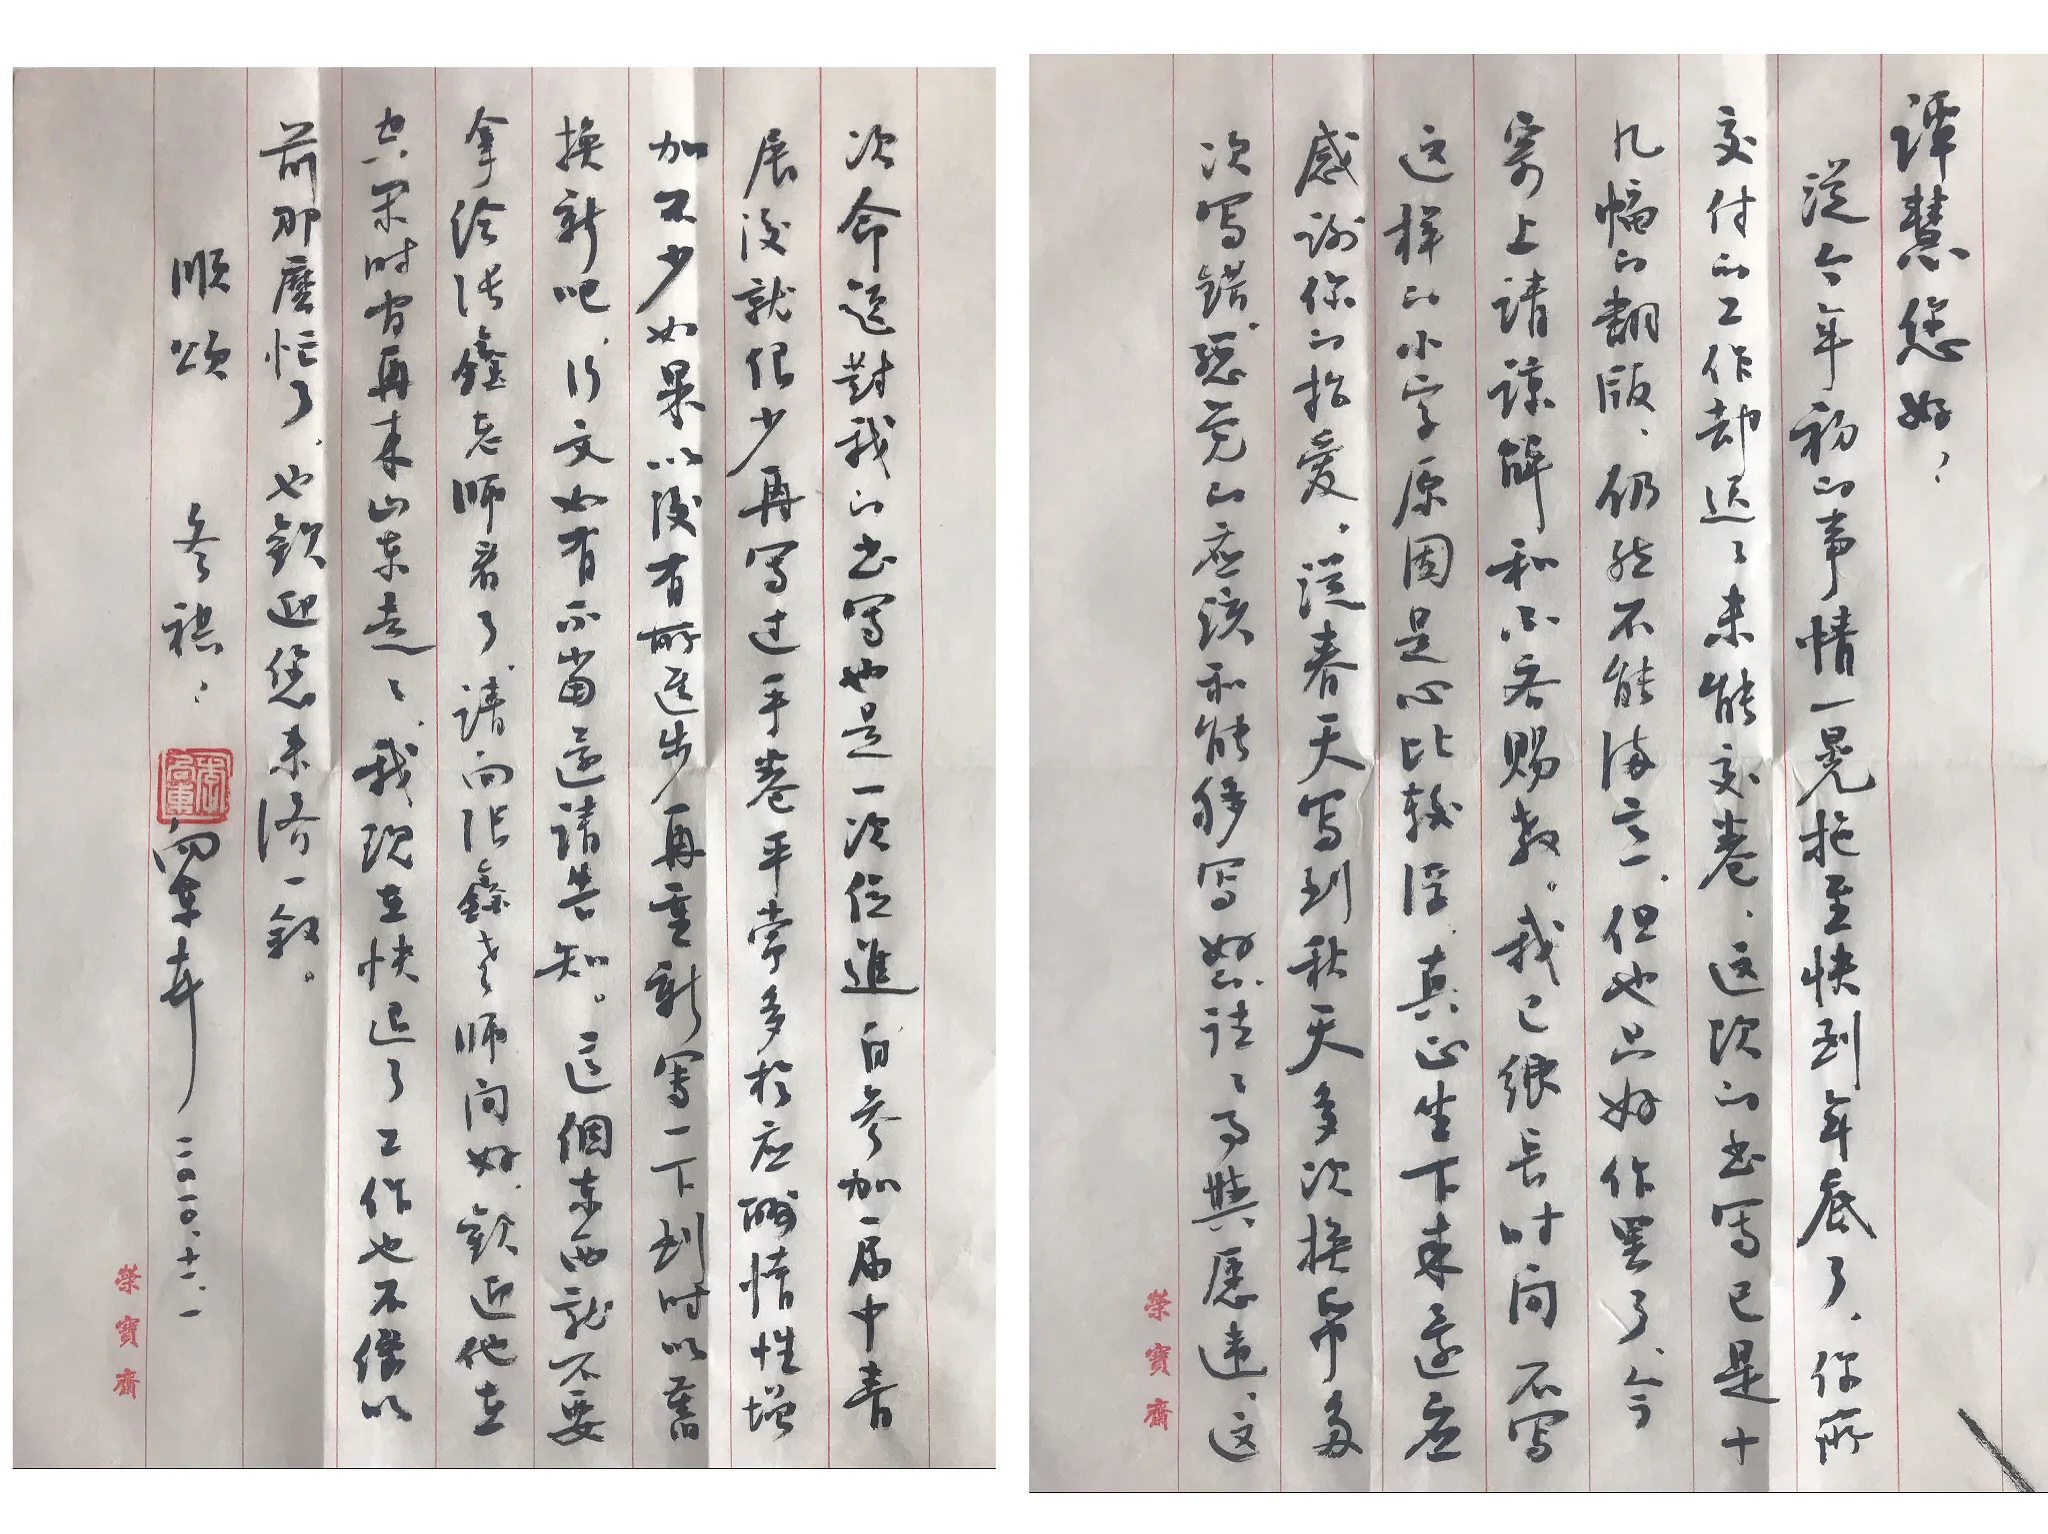 谭慧您好：
从今年初的事情一晃拖至快到年底了、你所
交付的工作却迟々未能交卷、这次的书写已是十
几幅的翻版、仍然不能满意、但也只好作罢了、今
寄上请谅解和不吝赐教。我已很长时间不写
这样的小字原因是心比较浮、真正坐下来还应
感谢你的抬爱。从春天写到秋天多次换纸多
次写错、总觉的应该和能够写好、往々事与愿违、这
荣宝斋
次命运对我的书写也是一次促進自参加一届中青
展后就很少再写过手卷平常多于应酬惰性增
加不少如果以后有所进步再重新写一下到时以旧
换新吧、行文如有不当还请告知。這個东西就不要
拿给张鑫老师看了、请向张鑫老师问好、欢迎他在
空闲时有再来山东走々、我现在快退了工作也不像以
前那麼忙了、也欢迎您来济一叙。
顺颂
冬祺：
向东卉
二〇一〇、十二、一
榮寶齋